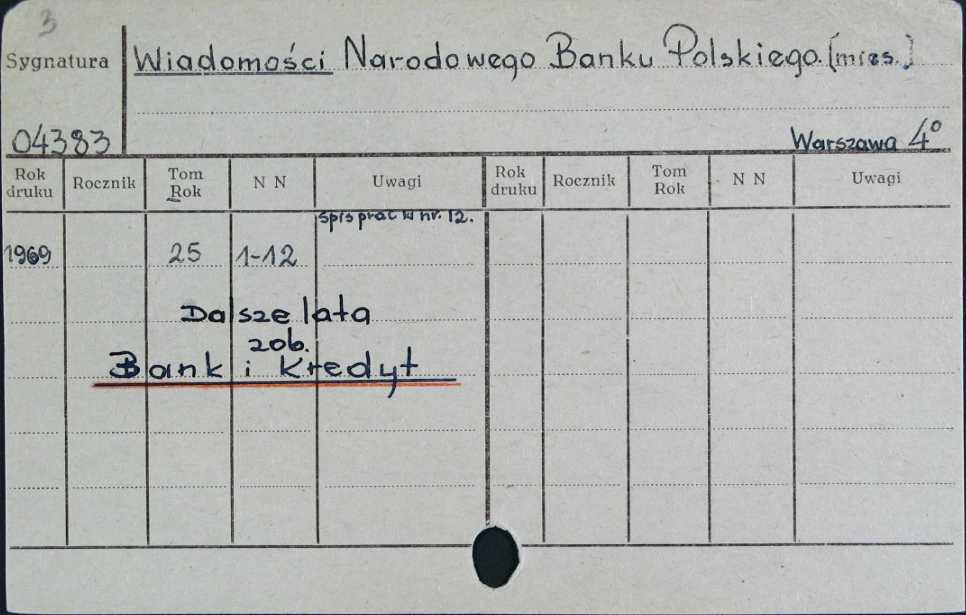 3
Sygnatura Wiadomości Narodowego Banku Polskiego. [mies.]
04383 Warszawa 4°
Rok druku Rocznik Tom Rok N N Uwagi Rok druku Rocznik Tom Rok N N Uwagi
spis prac w nr. 12.
1969 25 1-12
Dalsze lata
zob.
Bank i Kredyt